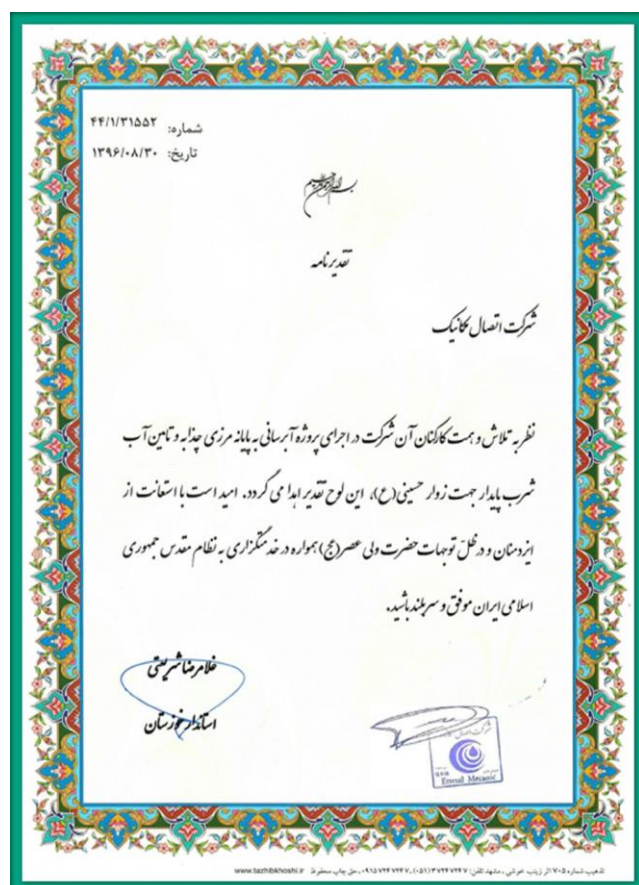 شماره: ۴۴/۱/۳۱۵۵۲
تاریخ: ۱۳۹۶/۰۸/۳۰
بسم الله الرحمن الرحیم
تقدیرنامه
شرکت اتصال مکانیک
نظر به تلاش و همت کارکنان آن شرکت در اجرای پروژه آبرسانی به پایانه مرزی چذابه و تامین آب
شرب پایدار جهت زوار حسینی(ع)، این لوح تقدیر اهدا می گردد. امید است با استعانت از
ایزدمنان و در ظل توجهات حضرت ولی عصر(عج) همواره در خدمتگزاری به نظام مقدس جمهوری
اسلامی ایران موفق و سربلند باشید.
غلامرضا شریعتی
استاندار خوزستان
شرکت اتصال
Etesal Mecanic
تذهیب شماره ۷۰۵ اثر زینب خوشی ، مشهد تلفن: ۳۷۲۴۷۲۴۷ (۰۵۱) ، ۰۹۱۵۷۲۴۷۲۴۷ ، حق چاپ محفوظ www.tazhibkhoshi.ir